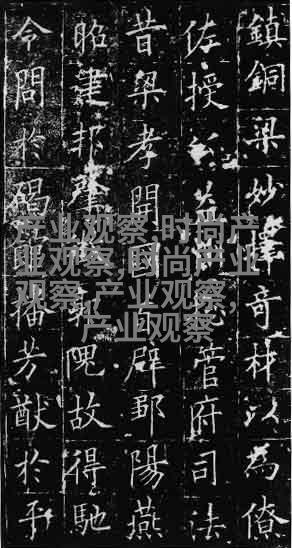 鎮銅梁妙擇奇材以為僚
佐授益州總管府司法
昔梁孝開國首辟鄒陽燕
昭建邦肇郭隗故得馳
令問於碣館播芳猷於平
产业观察,时尚产
业观察,时尚产业
观察,产业观察,
产业观察